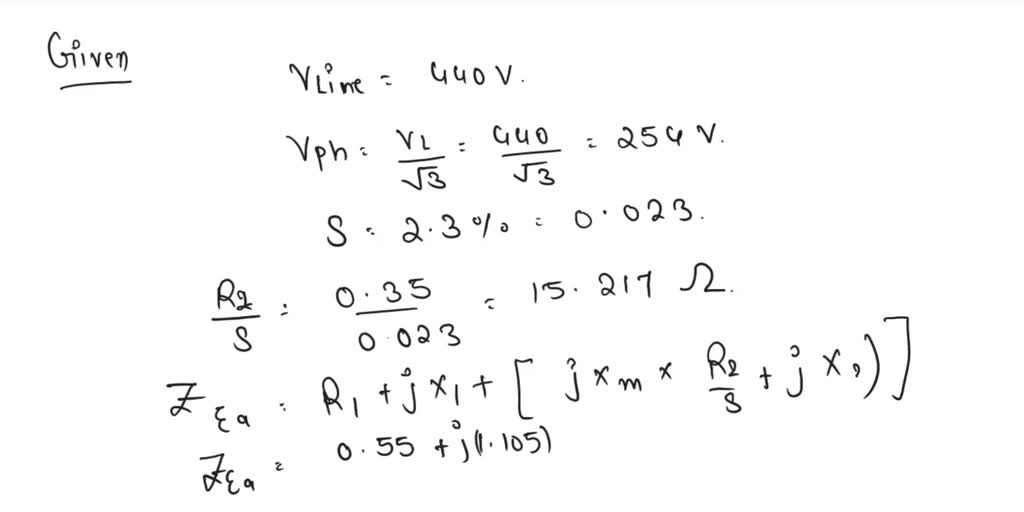 Given
VLine = 440 V.
Vph = VL/√3 = 440/√3 = 254 V.
S = 2.3% = 0.023.
R2/S = 0.35/0.023 = 15.217 Ω.
ZEq = R1 + jx1 + [ jxm × R2/S + jx2)]
ZEq = 0.55 + j(1.105)